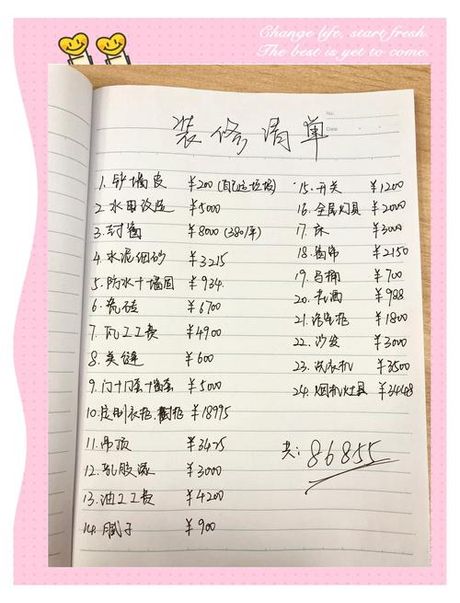 Change life, start fresh.
The best is yet to come.
No.
Date
装修清单
1. 铲墙皮 ¥200 (自己运垃圾)
2. 水电改造 ¥5000
3. 封窗 ¥8000 (380/平)
4. 水泥细砂 ¥3215
5. 防水+墙固 ¥934
6. 瓷砖 ¥6700
7. 瓦工工费 ¥4900
8. 美缝 ¥600
9. 门+门套+窗套 ¥5000
10. 定制衣柜、橱柜 ¥18995
11. 吊顶 ¥3475
12. 乳胶漆 ¥3000
13. 油工工费 ¥4200
14. 腻子 ¥900
15. 开关 ¥1200
16. 全屋灯具 ¥2000
17. 床 ¥3000
18. 窗帘 ¥2150
19. 马桶 ¥700
20. 花洒 ¥988
21. 浴室柜 ¥1800
22. 沙发 ¥3000
23. 洗衣机 ¥3500
24. 烟机灶具 ¥3448
共: 86855